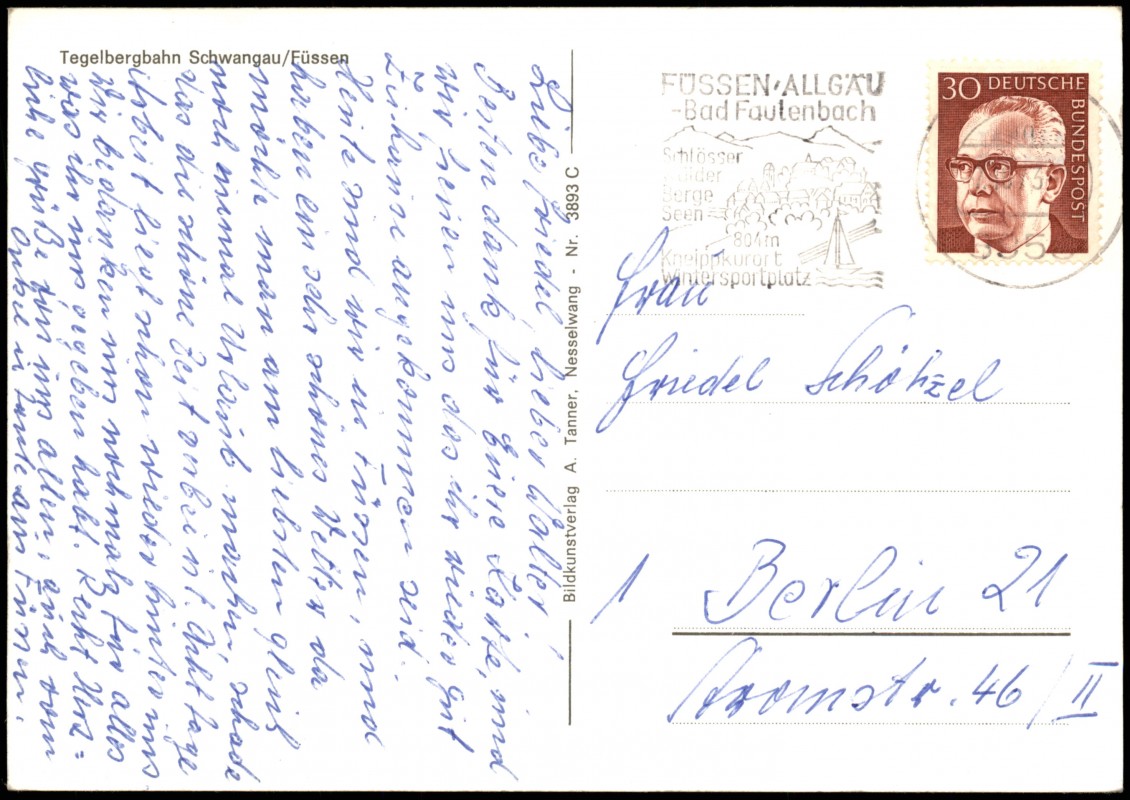 Tegelbergbahn Schwangau/Füssen
Liebe Friedel, lieber Walter!
Besten dank für Eure Karte, und
wir freuen uns das ihr wieder gut
Zuhause angekommen seid.
Heute sind wir in Füssen, und
haben ein sehr schönes Wetter da
möchte man am liebsten gleich
noch einmal Urlaub machen, schade
das die schöne Zeit vorbei ist. Acht Tage
Arbeit liegt schon wieder hinter uns
Wir bedanken uns nochmals für alles
was ihr uns gegeben habt. Recht Herz=
liche Grüße von uns allen, auch von
Onkel u. Tante aus Füssen.
Bildkunstverlag A. Tanner, Nesselwang - Nr. 3893 C
FÜSSEN/ALLGÄU
-Bad Faulenbach
Schlösser
Wälder
Berge
Seen
804m
Kneippkurort
Wintersportplatz
30 DEUTSCHE
BUNDESPOST
Frau
Friedel Schötzel
1 Berlin 21
Stromstr. 46/II